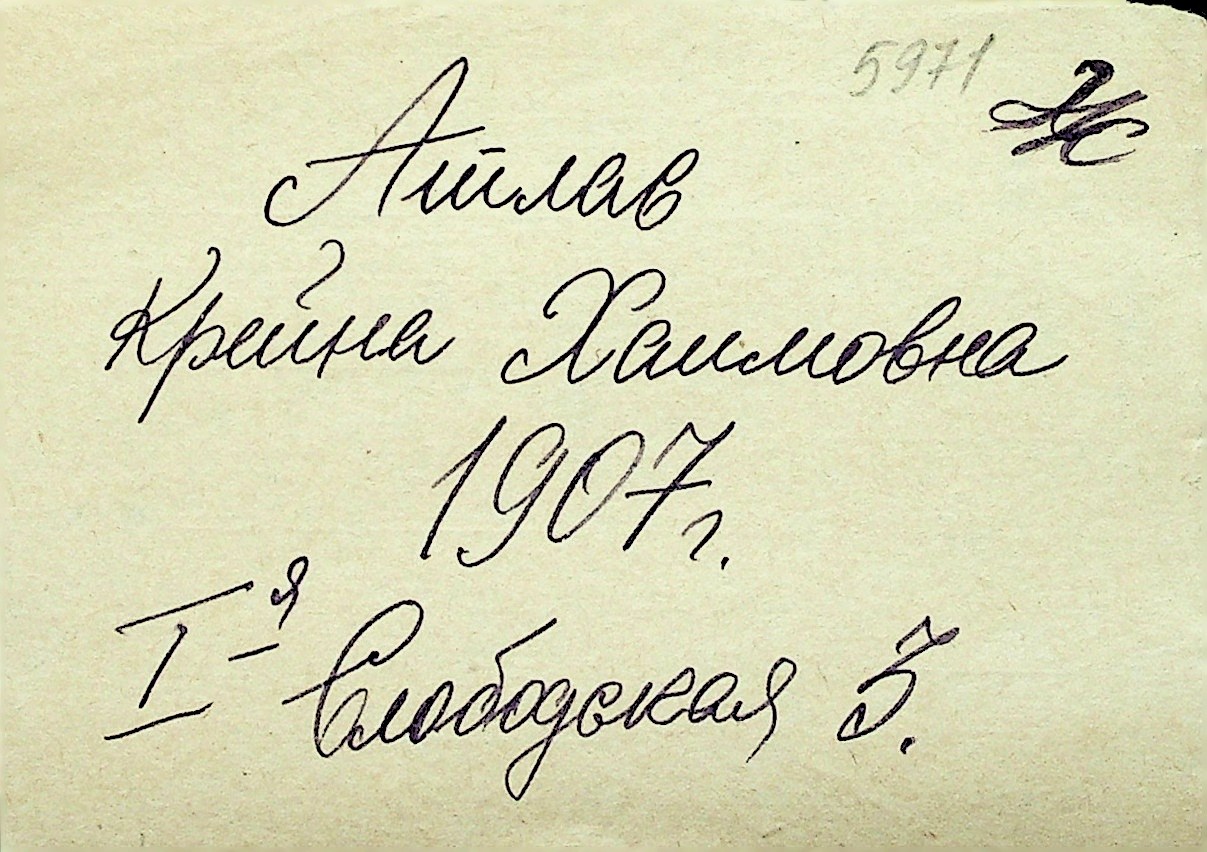 5971 Ж
Атлав
Крейна Хаимовна
1907г.
I-я Слободская 3.